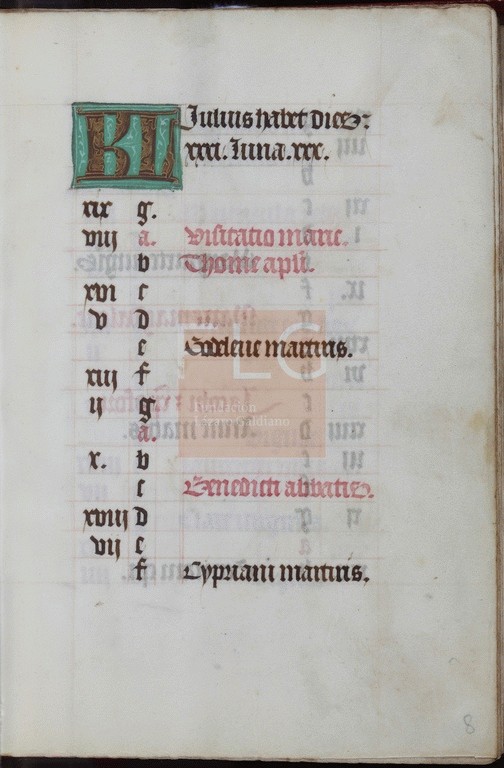 KL Julius habet dies
xxxi. luna. xxx.
xix g.
viij a. Visitatio marie.
b Thome apli.
xvi c
v d
e Godeleue martiris.
xiij f
ij g
a.
x. b
c Benedicti abbatis.
xviij d
vij e
f Cypriani martiris.
FLG
Fundación
Lázaro Galdiano
8